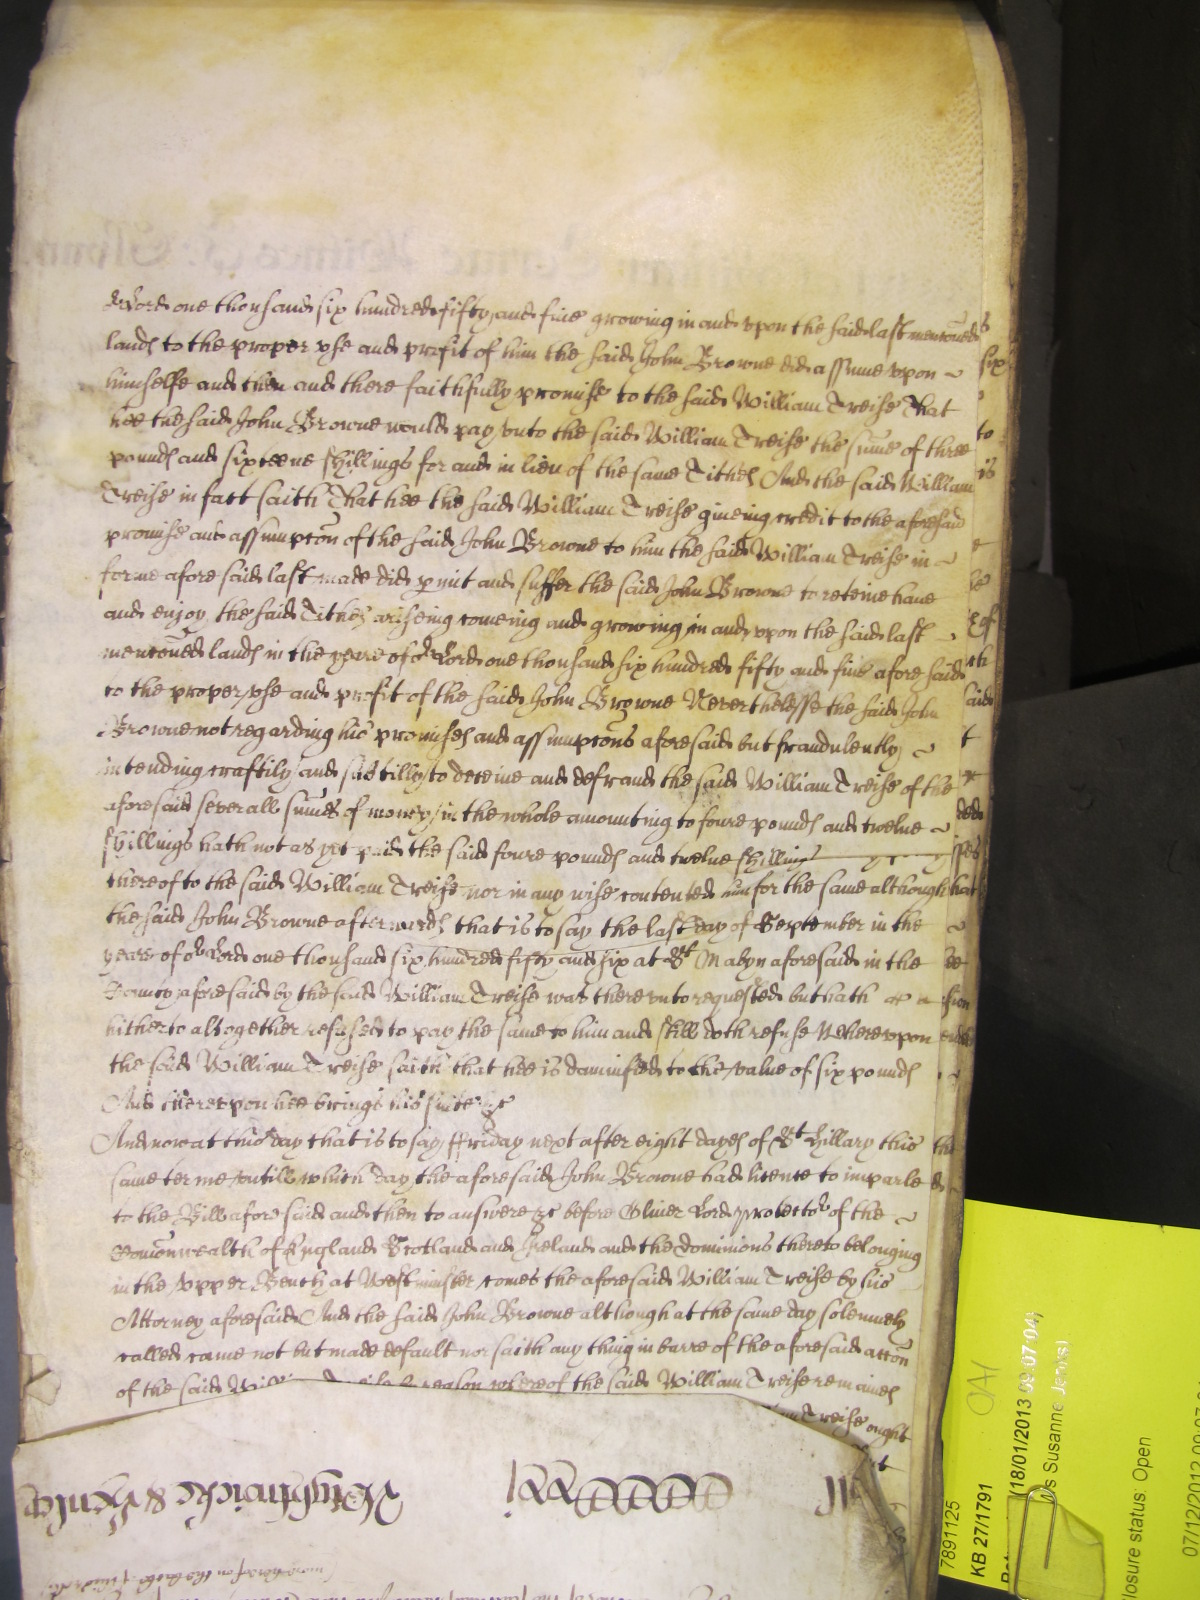 Lord one thousand six hundred fifty and five growing in and vpon the said last menconed
lands to the proper vse and profit of him the said John Browne did assume vpon
himselfe and then and there faithfully promise to the said William Treise That
hee the said John Browne would pay vnto the said William Treise the sume of three
pounds and sixteene shillings for and in lieu of the same Tithes And the said William
Treise in fact saith That hee the said William Treise giueing credit to the aforesaid
promise and assumpcon of the said John Browne to him the said William Treise in
forme aforesaid last made did pmit and suffer the said John Browne to reteine haue
and enjoy the said Tithes ariseing comeing and growing in and vpon the said last
menconed lands in the yeare of or Lord one thousand six hundred fifty and fiue aforesaid
to the proper vse and profit of the said John Browne Neverthelesse the said John
Browne not regarding his promises and assumpcons aforesaid but fraudulently
intending craftily and subtilly to deceiue and defraud the said William Treise of the
aforesaid severall sumes of money in the whole amounting to foure pounds and twelue
shillings hath not as yet paid the said foure pounds and twelue shillings
thereof to the said William Treise nor in any wise contented him for the same although
the said John Browne afterwards that is to say the last day of September in the
yeare of or Lord one thousand six hundred fifty and six at St Mabyn aforesaid in the
County aforesaid by the said William Treise was therevnto requested but hath
hitherto altogether refused to pay the same to him and still doth refuse Wherevpon
the said William Treise saith that hee is damnified to the value of six pounds
And therevpon hee brings his suite &c
And now at this day that is to say ffriday next after eight dayes of St Hillary this
same terme vntill which day the aforesaid John Browne had licence to imparle
to the Bill aforesaid and then to answere &c before Oliuer Lord protector of the
Comonwealth of England Scotland and Ireland and the dominions thereto belonging
in the Vpper Bench at Westminster comes the aforesaid William Treise by his
Attorney aforesaid And the said John Browne although at the same day solemnely
called came not but made default nor saith any thing in barre of the aforesaid accon
of the said reason whereof the said William Treise remaines
Treise ought
Wightwicke & Henley
7891125
KB 27/1791
(18/01/2013 09:07:04)
Susanne Jenks)
losure status: Open